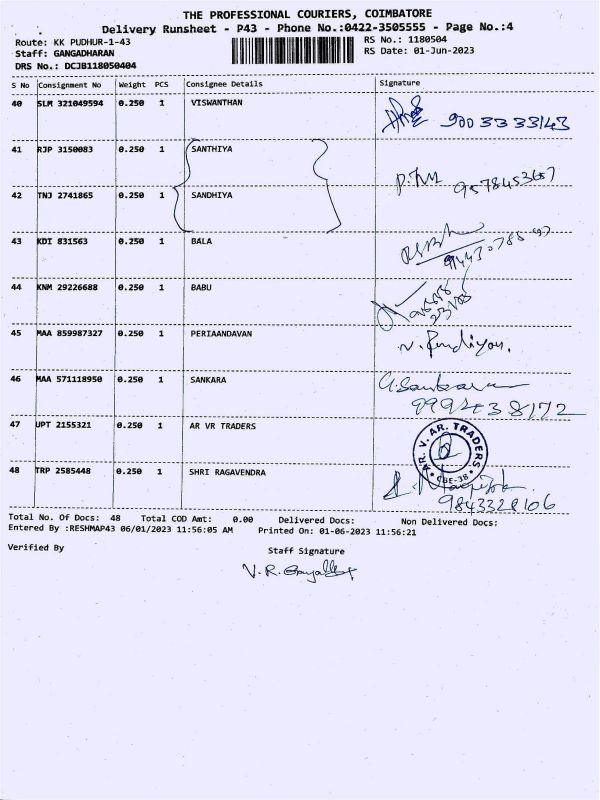 THE PROFESSIONAL COURIERS, COIMBATORE
Delivery Runsheet - P43 - Phone No.:0422-3505555 - Page No.:4
Route: KK PUDHUR-1-43 RS No.: 1180504
Staff: GANGADHARAN RS Date: 01-Jun-2023
DRS No.: DCJB118050404
S No Consignment No Weight PCS Consignee Details Signature
40 SLM 321049594 0.250 1 VISWANTHAN
9003333143
41 RJP 3150083 0.250 1 SANTHIYA
9578453657
42 TNJ 2741865 0.250 1 SANDHIYA
43 KDI 831563 0.250 1 BALA
44 KNM 29226688 0.250 1 BABU
45 MAA 859987327 0.250 1 PERIAANDAVAN
46 MAA 571118950 0.250 1 SANKARA
9994438172
47 UPT 2155321 0.250 1 AR VR TRADERS
AR. V. AR. TRADERS
CBE-38
48 TRP 2585448 0.250 1 SHRI RAGAVENDRA
9843328106
Total No. Of Docs: 48 Total COD Amt: 0.00 Delivered Docs: Non Delivered Docs:
Entered By :RESHMAP43 06/01/2023 11:56:05 AM Printed On: 01-06-2023 11:56:21
Verified By Staff Signature
V. R.